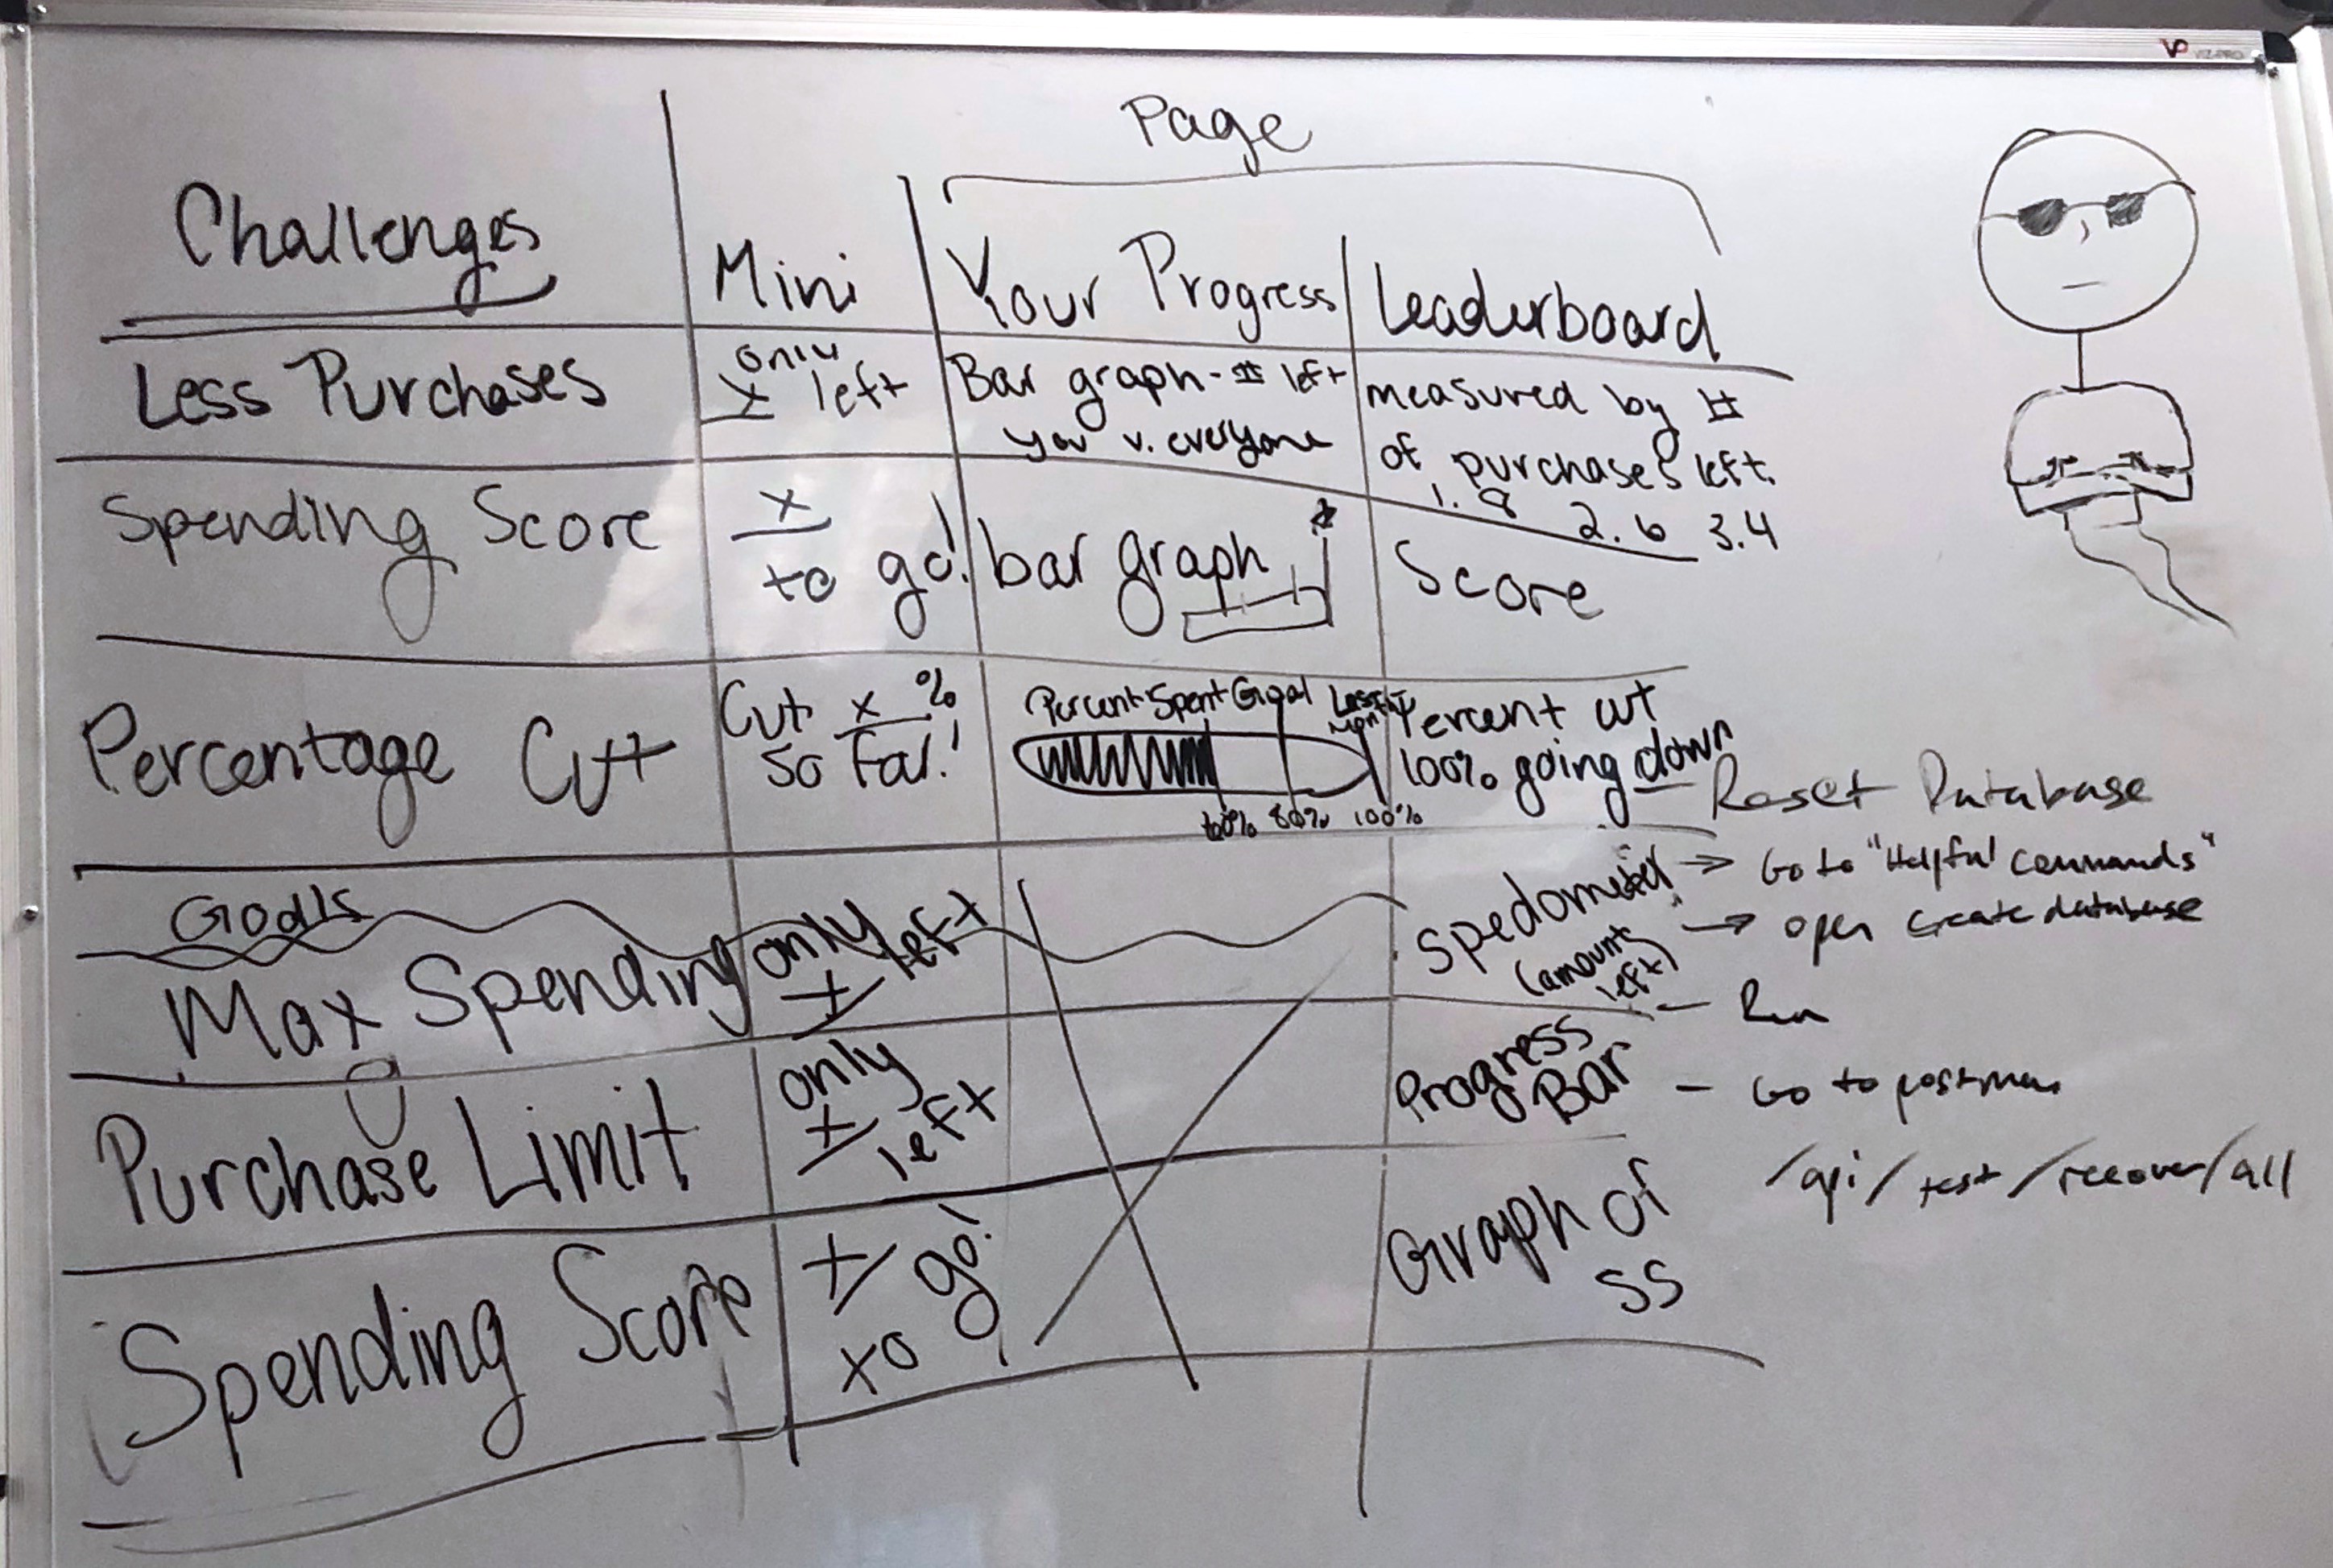 VP VIZ-PRO
Page
Challenges
Mini
Your Progress
Leaderboard
Less Purchases
only
x left
Bar graph - # left
you v. everyone
measured by #
of purchases left.
1. 8 2. 6 3. 4
Spending Score
x
to go!
bar graph
Score
Percentage Cut
Cut x %
so far!
Percent Spent Goal Last Month
60% 80% 100%
Percent cut
100% going down
Goals
Max Spending
only
x left
Spedometer
(amount
left)
Purchase Limit
only
x left
Progress
Bar
Spending Score
x go!
to
Graph of
SS
Reset Database
→ Go to "Helpful Commands"
→ open create database
- Run
- Go to postman
/api/test/recover/all